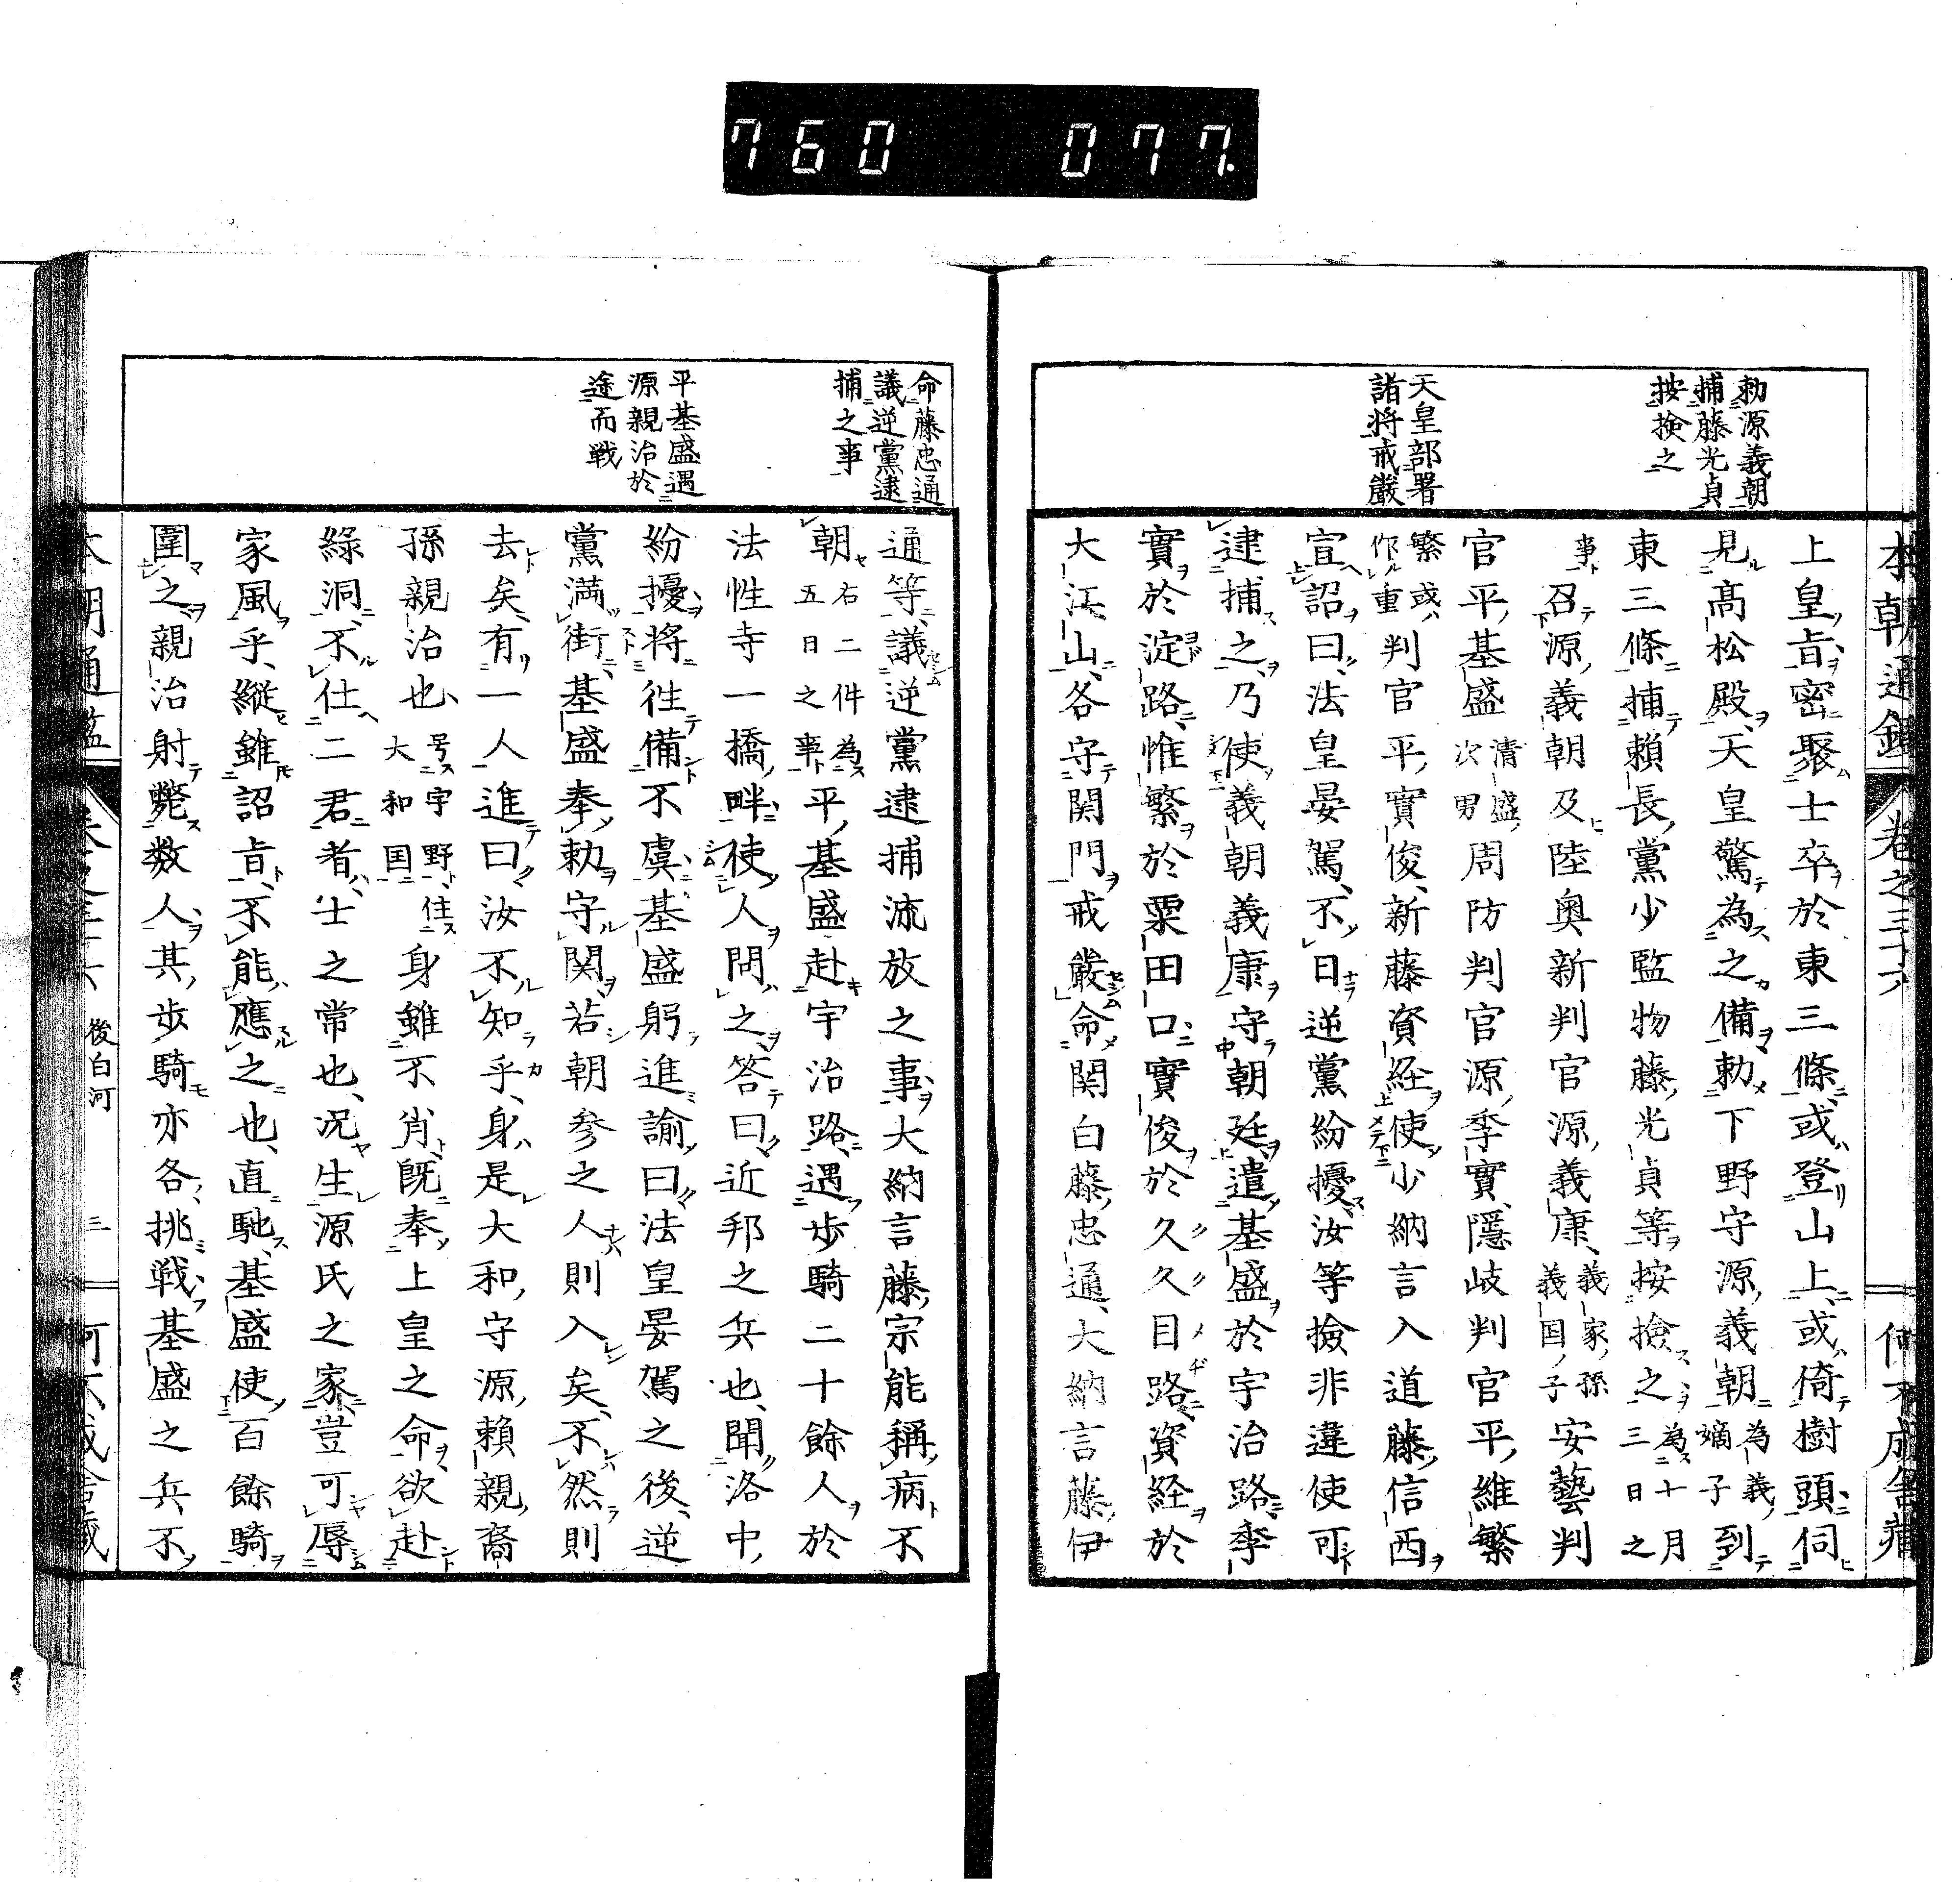 760 077.
本朝通鑑 卷之三十六
勅源義朝
捕藤光貞
按撿之
天皇部署
諸将戒嚴
上皇旨密聚士卒於東三條或登山上或倚樹頭伺
見髙松殿天皇驚為之備勅下野守源義朝為義嫡子到
東三條捕賴長黨少監物藤光貞等按撿之為十月三日之
事召源義朝及陸奥新判官源義康義家孫義国子安藝判
官平基盛清盛次男周防判官源季實隱岐判官平維繁
繁或作重判官平實俊新藤資経使少納言入道藤信西
宣詔曰法皇晏駕不日逆黨紛擾汝等撿非違使可
逮捕之乃使義朝義康守朝廷遣基盛於宇治路季
實於淀路惟繁於粟田口實俊於久久目路資経於
大江山各守関門戒嚴命関白藤忠通大納言藤伊
命藤忠通
議逆黨逮
捕之事
平基盛遇
源親治於
途而戦
通等議逆黨逮捕流放之事大納言藤宗能稱病不
朝右二件為五日之事平基盛赴宇治路遇步騎二十餘人於
法性寺一橋畔使人問之答曰近邦之兵也聞洛中
紛擾将徃備不虞基盛躬進諭曰法皇晏駕之後逆
黨満街基盛奉勅守関若朝参之人則入矣不然則
去矣有一人進曰汝不知乎身是大和守源賴親裔
孫親治也号宇野住大和国身雖不肖既奉上皇之命欲赴
綠洞不仕二君者士之常也況生源氏之家豈可辱
家風乎縱雖詔旨不能應之也直馳基盛使百餘騎
圍之親治射斃数人其步騎亦各挑戦基盛之兵不
後白河 三